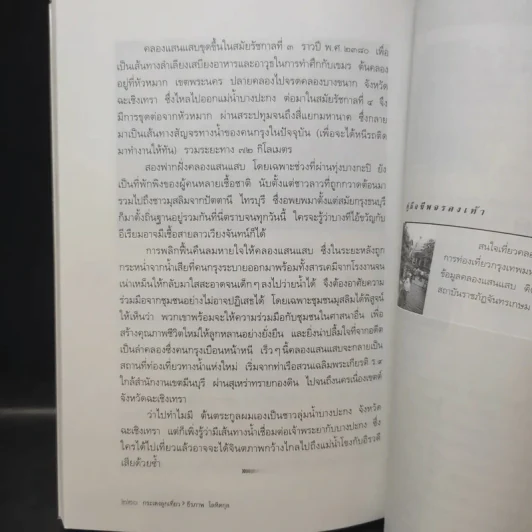 คลองแสนแสบขุดขึ้นในสมัยรัชกาลที่ ๓ ราวปี พ.ศ. ๒๓๘๐ เพื่อ
เป็นเส้นทางลำเลียงเสบียงอาหารและอาวุธในการทำศึกกับเขมร ต้นคลอง
อยู่ที่หัวหมาก เขตพระนคร ปลายคลองไปจรดคลองบางขนาก จังหวัด
ฉะเชิงเทรา ซึ่งไหลไปออกแม่น้ำบางปะกง ต่อมาในสมัยรัชกาลที่ ๔ จึง
มีการขุดต่อจากหัวหมาก ผ่านสระปทุมจนถึงสี่แยกมหานาค ซึ่งกลาย
มาเป็นเส้นทางสัญจรทางน้ำของคนกรุงในปัจจุบัน (เพื่อจะได้หนีรถติด
มาทำงานให้ทัน) รวมระยะทาง ๗๒ กิโลเมตร
สองฟากฝั่งคลองแสนแสบ โดยเฉพาะช่วงที่ผ่านทุ่งบางกะปิ ยัง
เป็นที่พักพิงของผู้คนหลายเชื้อชาติ นับตั้งแต่ชาวลาวที่ถูกกวาดต้อนมา
รวมไปถึงชาวมุสลิมจากปัตตานี ไทรบุรี ซึ่งอพยพมาตั้งแต่สมัยกรุงธนบุรี
ก็มาตั้งถิ่นฐานอยู่รวมกันที่นี่ตราบจนทุกวันนี้ ใครจะรู้ว่าบางทีไอ้ขวัญกับ
อีเรียมอาจมีเชื้อสายลาวเวียงจันทน์ก็ได้
การพลิกฟื้นคืนลมหายใจให้คลองแสนแสบ ซึ่งในระยะหลังถูก
กระหน่ำจากน้ำเสียที่คนกรุงระบายออกมาพร้อมทั้งสารเคมีจากโรงงานจน
เน่าเหม็นให้กลับมาใสสะอาดจนเด็กๆ ลงไปว่ายน้ำได้ จึงต้องอาศัยความ
ร่วมมือจากชุมชนอย่างไม่อาจปฏิเสธได้ โดยเฉพาะชุมชนมุสลิมได้พิสูจน์
ให้เห็นว่า พวกเขาพร้อมจะให้ความร่วมมือกับชุมชนในศาสนาอื่น เพื่อ
สร้างคุณภาพชีวิตใหม่ให้ลูกหลานอย่างยั่งยืน และยิ่งน่าปลื้มใจที่จากอดีต
เป็นลำคลองซึ่งคนกรุงเบือนหน้าหนี เร็วๆ นี้คลองแสนแสบจะกลายเป็น
สถานที่ท่องเที่ยวทางน้ำแห่งใหม่ เริ่มจากท่าเรือสวนเฉลิมพระเกียรติ ร.๙
ใกล้สำนักงานเขตมีนบุรี ผ่านสุเหร่าทรายกองดิน ไปจนถึงนครเนื่องเขตต์
จังหวัดฉะเชิงเทรา
ว่าไปทำไมมี ต้นตระกูลผมเองเป็นชาวลุ่มน้ำบางปะกง จังหวัด
ฉะเชิงเทรา แต่ก็เพิ่งรู้ว่ามีเส้นทางน้ำเชื่อมต่อเจ้าพระยากับบางปะกง ซึ่ง
ใครได้ไปเที่ยวแล้วอาจจะได้จินตภาพกว้างไกลไปถึงแม่น้ำโขงกับอิรวดี
เสียด้วยซ้ำ
ธีรภาพ โลหิตกุล
คู่มือชีพจรลงเท้า
สนใจเที่ยวคลอง
การท่องเที่ยวกรุงเทพมห
ข้อมูลคลองแสนแสบ ติด
สถาบันราชภัฏจันทรเกษม